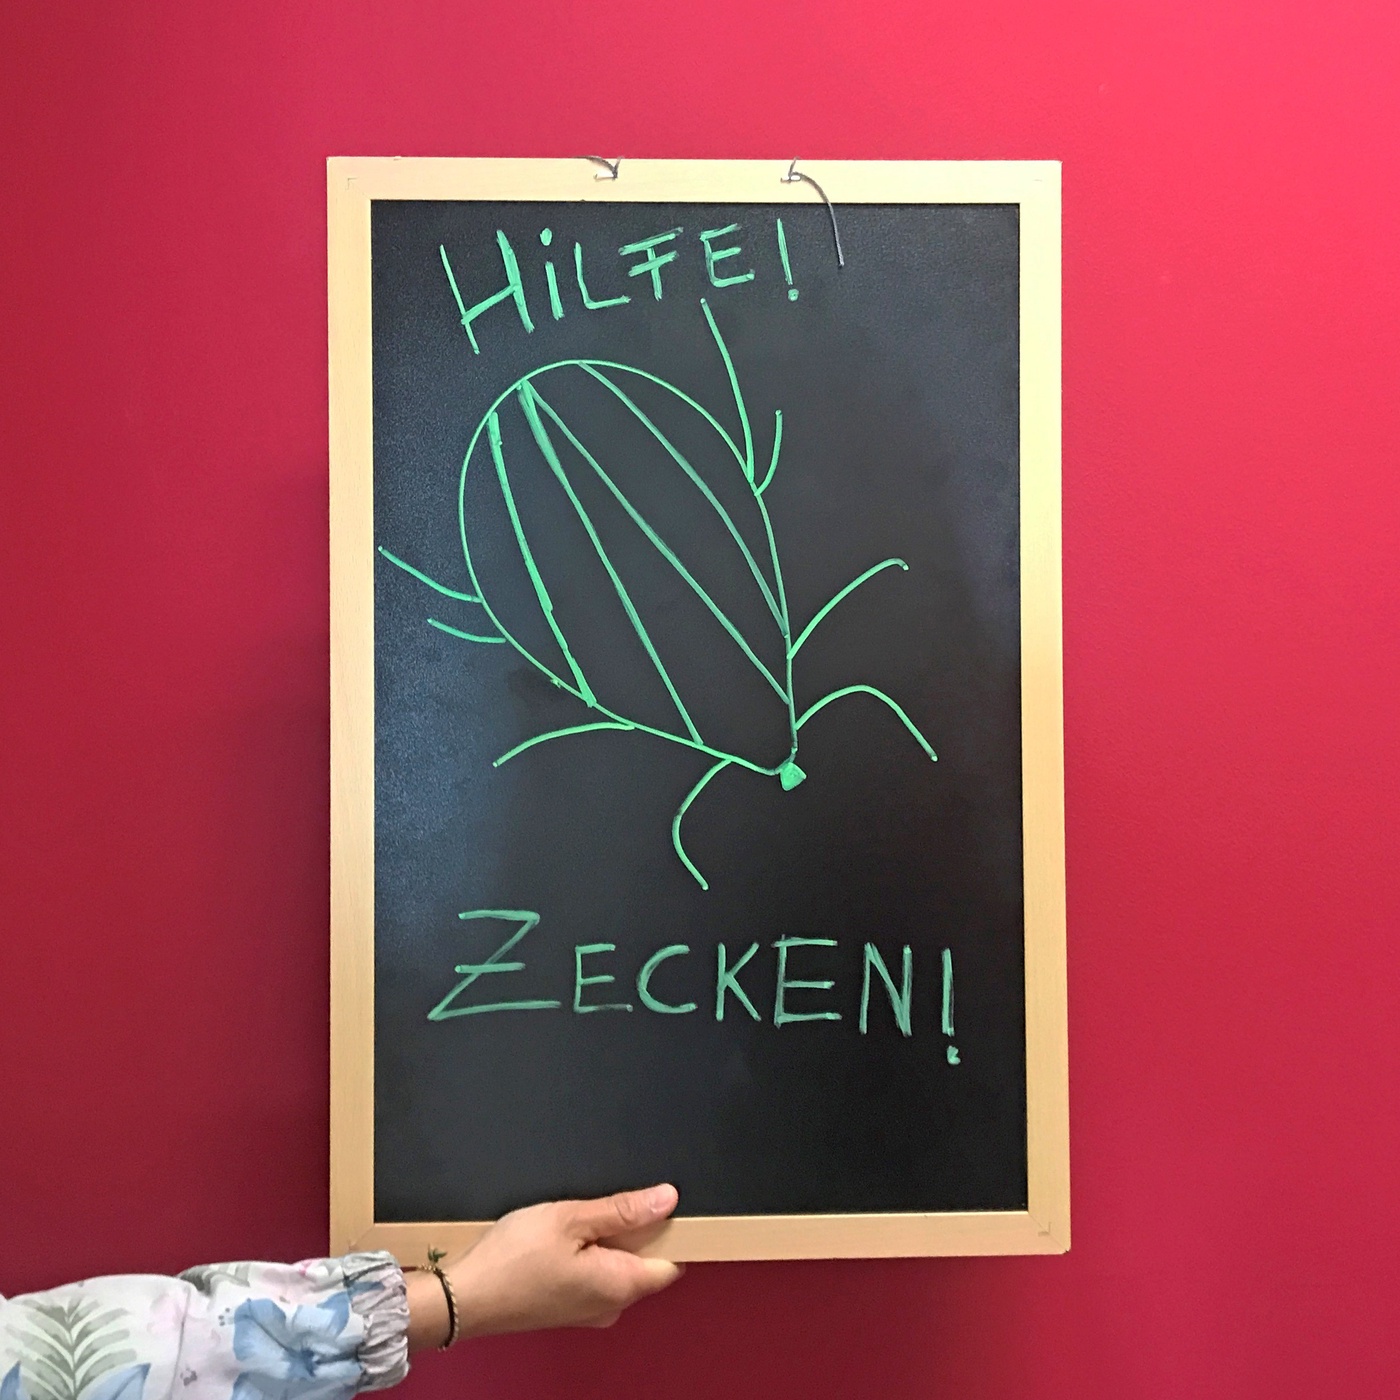 HiLFE!
ZECKEN!